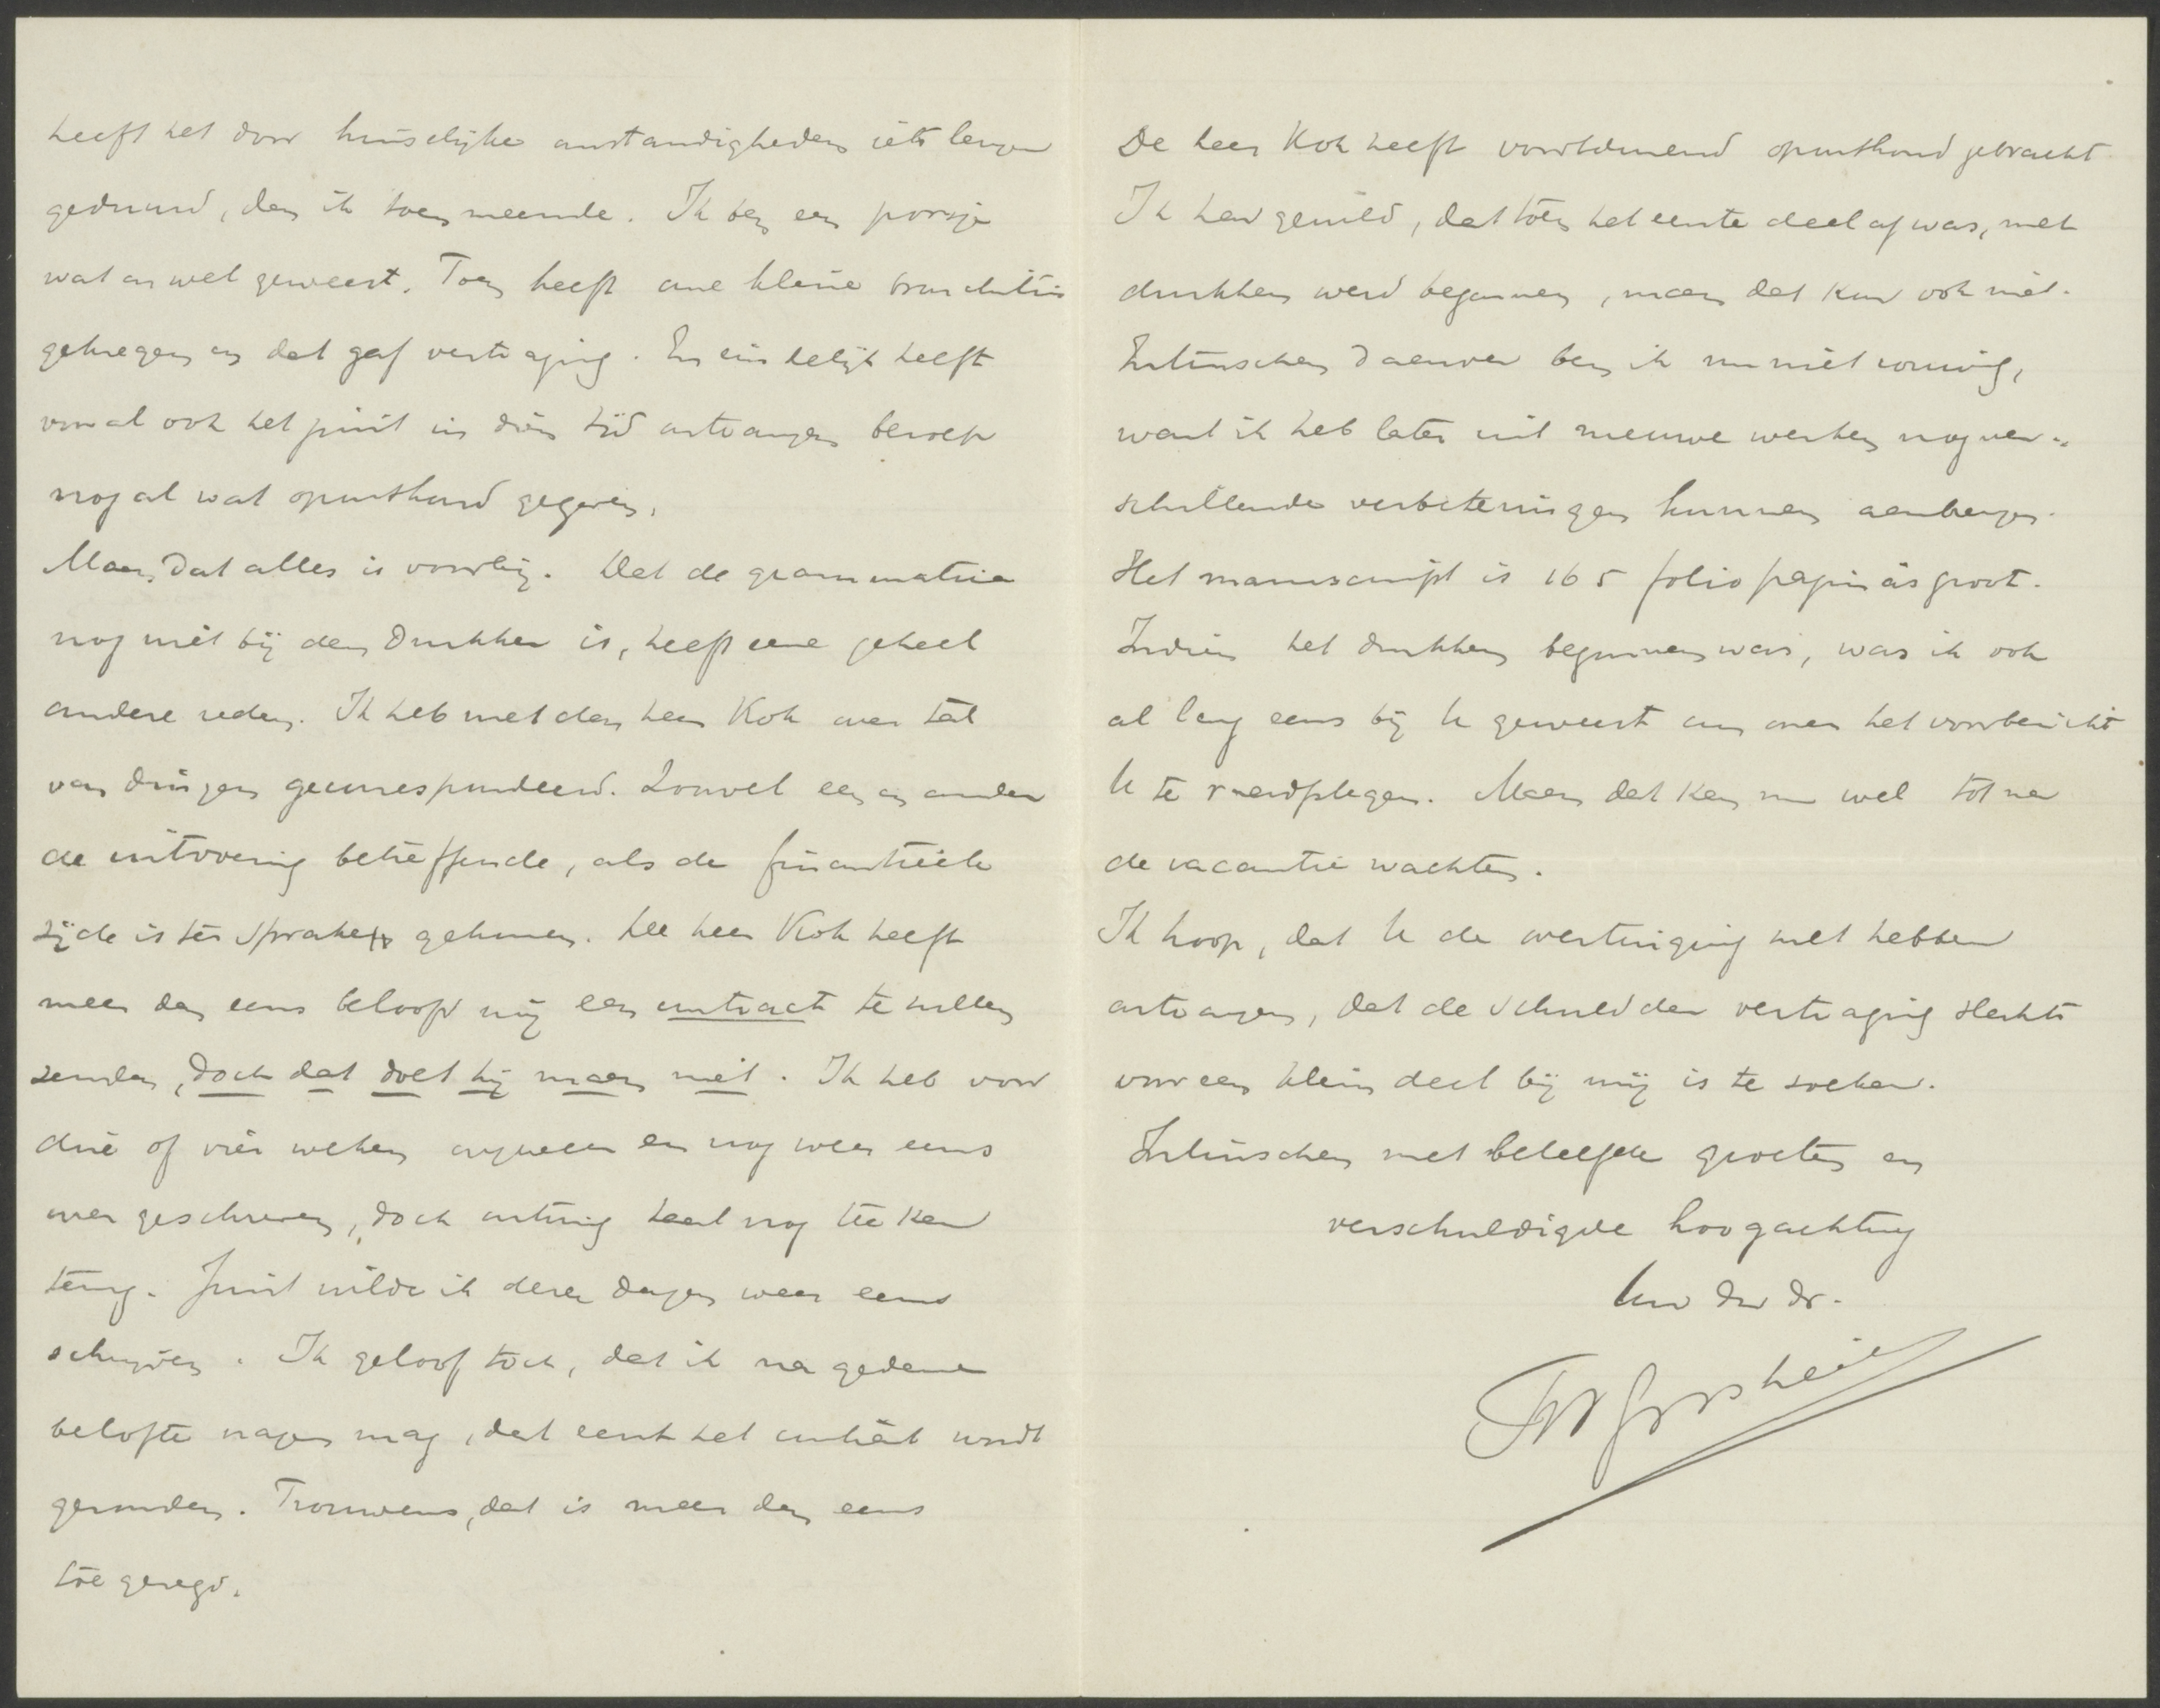 heeft het door huiselijke omstandigheden iets langer
geduurd, dan ik toen meende. Ik ben een poosje
wat onwel geweest. Toen heeft onze kleine bronchitis
gekregen en dat gaf vertraging. En eindelijk heeft
vooral ook het juist in dien tijd ontvangen beroep
nog al wat oponthoud gegeven.
Maar, dat alles is voorbij. Dat de grammatica
nog niet bij den drukker is, heeft eene geheel
andere reden. Ik heb met den heer Kok over tal
van dingen gecorrespondeerd. Zoowel een en ander
de uitvoering betreffende, als de financiëele
zijde is ter sprake gekomen. De heer Kok heeft
meer dan eens beloofd mij een contract te zullen
zenden, doch dat doet hij maar niet. Ik heb voor
drie of vier weken ongeveer er nog weer eens
over geschreven, doch ontving taal nog teeken
terug. Juist wilde ik dezer dagen weer eens
schrijven. Ik geloof toch, dat ik na gedane
belofte vragen mag, dat eerst het contract wordt
gezonden. Trouwens, dat is meer dan eens
toegezegd.
De heer Kok heeft voortdurend oponthoud gebracht
Ik had gewild, dat toen het eerste deel af was, met
drukken werd begonnen, maar dat kon ook niet.
Intusschen daarover ben ik nu niet rouwig,
want ik heb later uit nieuwe werken nog ver-
schillende verbeteringen kunnen aanbrengen.
Het manuscript is 165 folio pagina's groot.
Indien het drukken begonnen was, was ik ook
al lang eens bij U geweest om over het voorbericht
U te raadplegen. Maar dat kan nu wel tot na
de vacantie wachten.
Ik hoop, dat U de overtuiging zult hebben
ontvangen, dat de schuld der vertraging slechts
voor een klein deel bij mij is te zoeken.
Intusschen met beleefde groeten en
verschuldigde hoogachting
Uw dw dr.